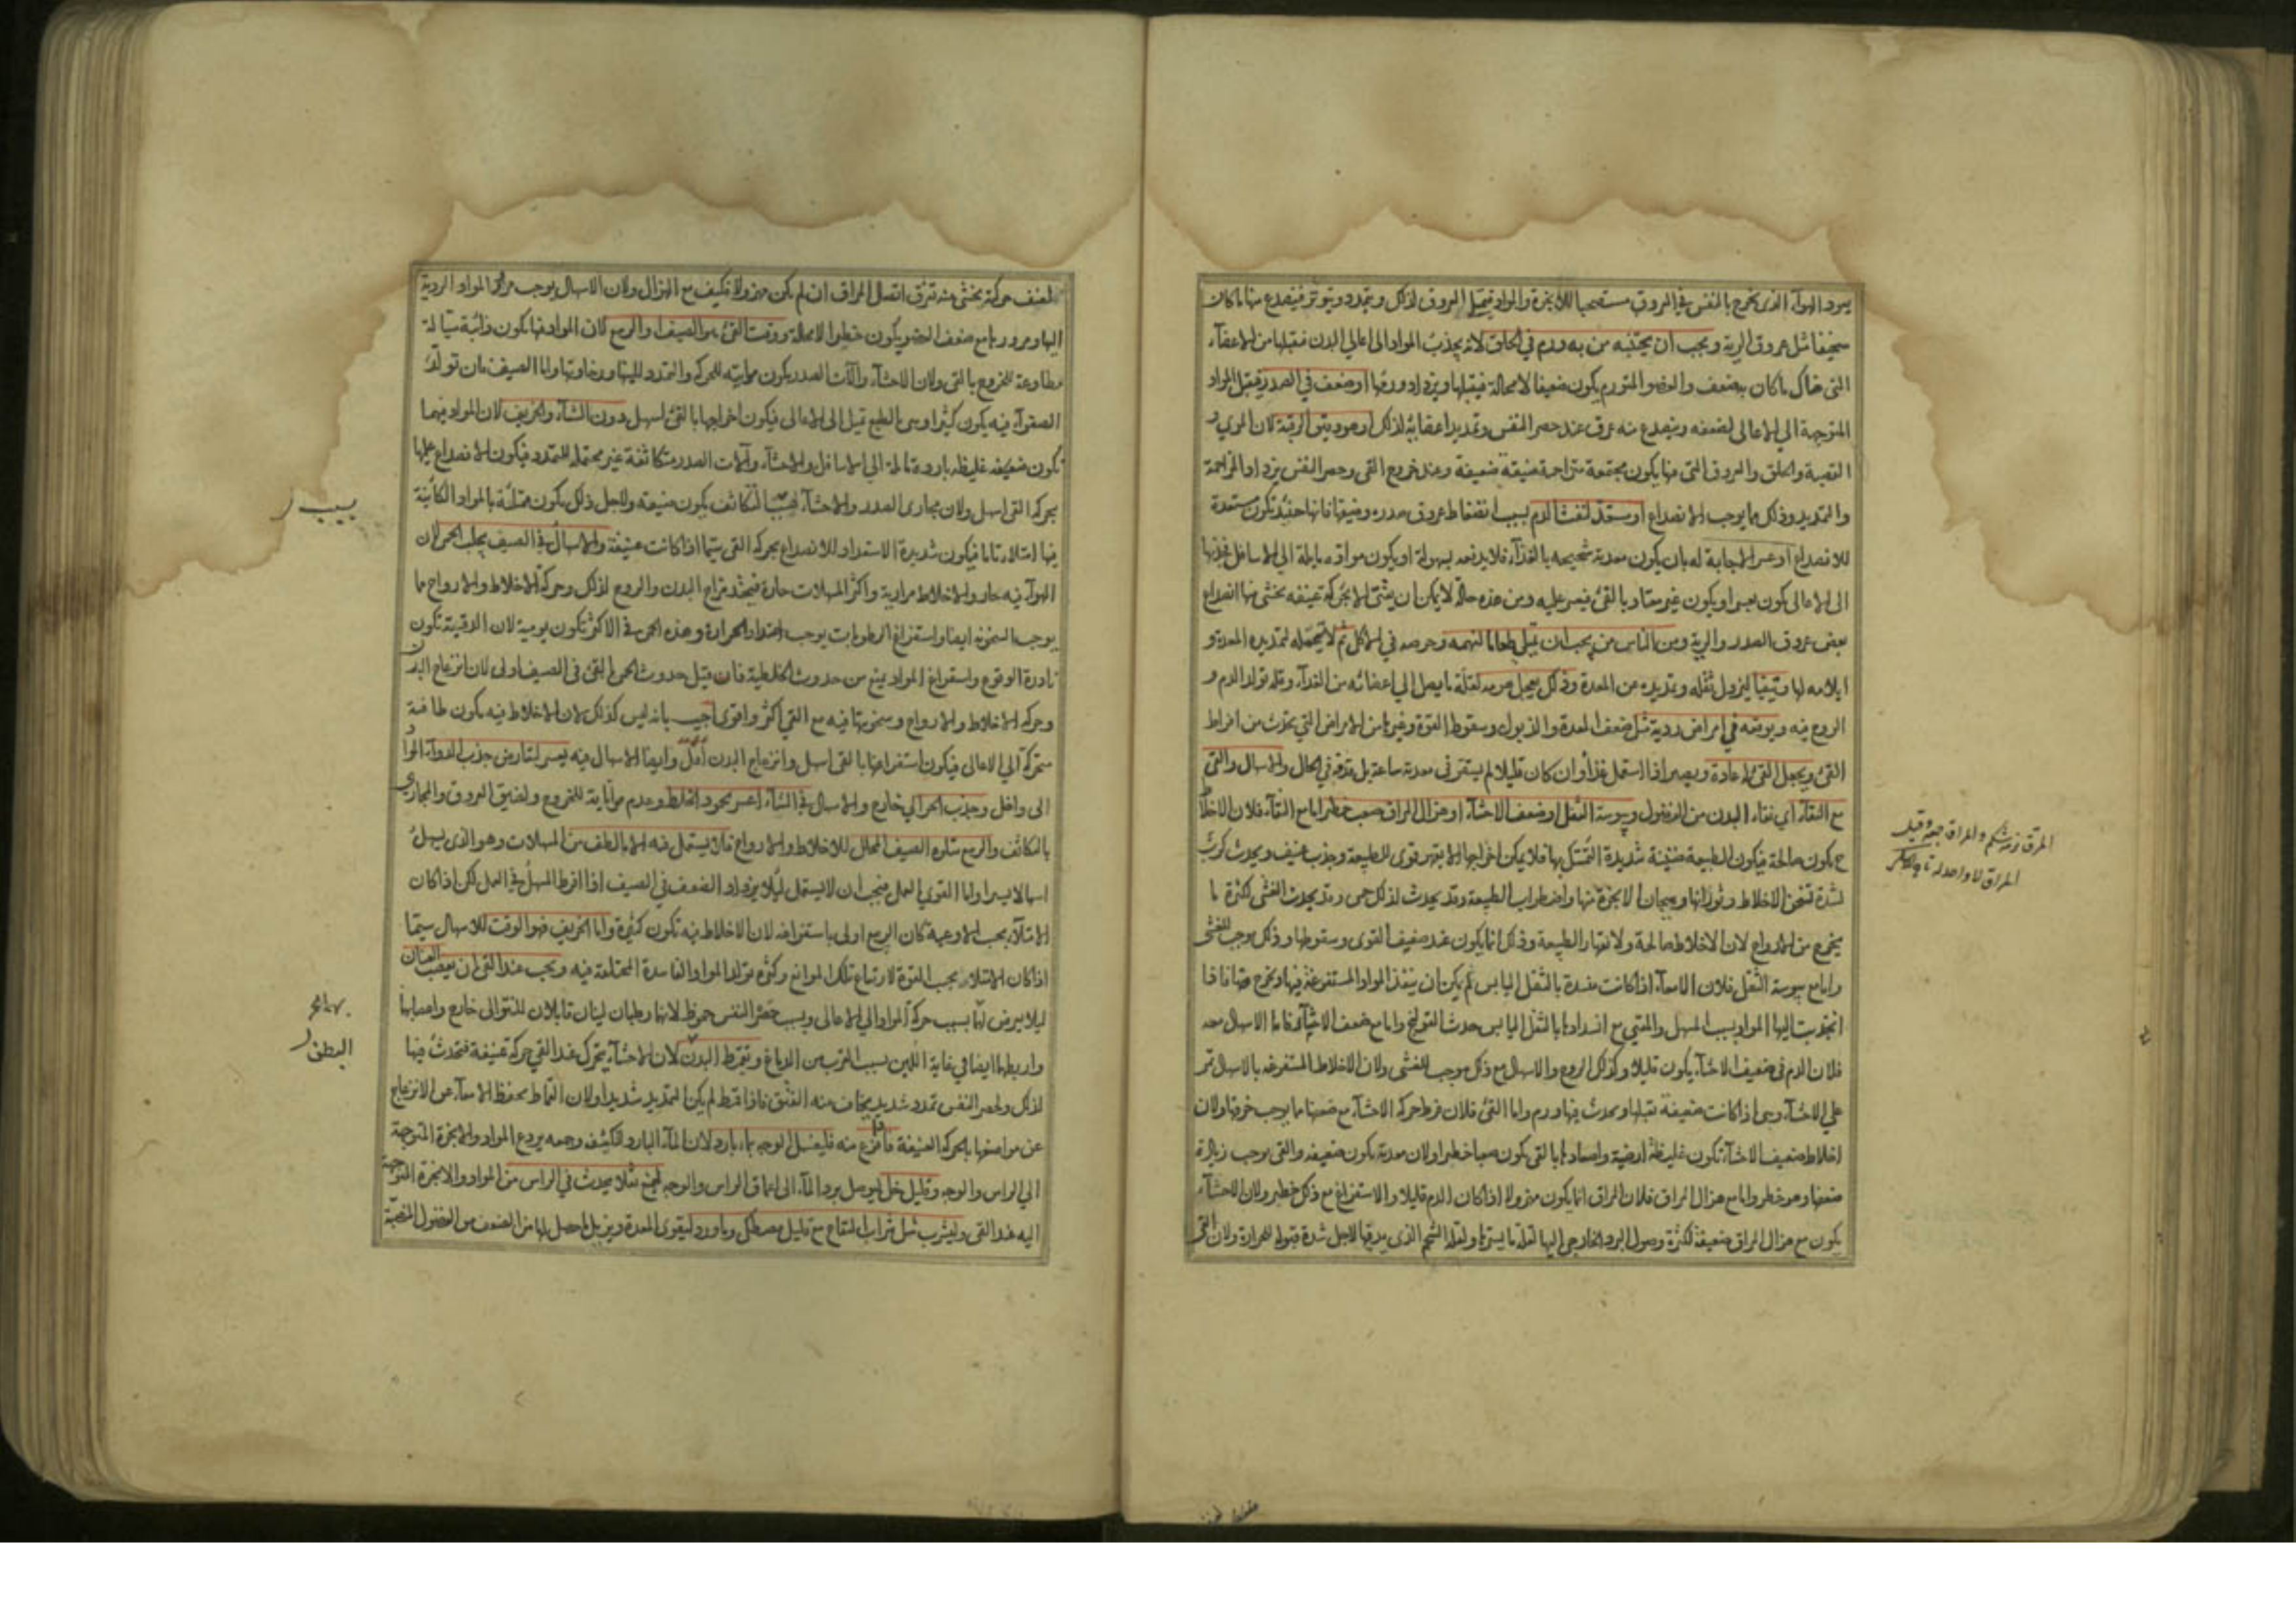 يبرد الهواء الذي يخرج بالنفس في العروق مستصحبا للابخرة والمواد فيميل العروق لذلك ويتمدد ويتوتر فينصدع منها ما كان
سخيفا مثل عروق الرية ويجب ان يجتنبه من به ورم في الحلق لانه يجذب المواد الى اعالي البدن فيقبلها من الاعضاء
التي هناك ما كان به ضعف والعضو المتورم يكون ضعيفا لا محالة فيقبلها ويزداد ورمها او ضعف في الصدر فيقبل المواد
المتوجهة الى الاعالى لضعفه وينصدع منه عرق عند حصر النفس وتمديد اعضائه لذلك او هو دقيق الرقبة لان المري و
القصبة والحلق والعروق التي فيها يكون مجتمعة متزاحمة ضيقة ضعيفة وعند خروج القى وحصر النفس يزداد المزاحمة
والتمديد وذلك مما يوجب الانصداع او مستعد لنفث الدم بسبب انضغاط عروق صدره وضيقها فانها حينئذ تكون مستعدة
للانصداع او عسر الاجابة له بان يكون معدته شحيحه بالغذاء فلا يدفعه بسهولة او يكون مواده مايلة الى الاسافل فجذبها
الى الاعالى يكون بعسر او يكون غير معتاد بالقئ فيعسر عليه ومن هذه حاله لا يمكن ان يتقيئ الا بحركة عنيفه يخشى منها انصداع
بعض عروق الصدر والرية ومن الناس من يحب ان يمتلئ طعاما لنهمه وحرصه في الاكل ثم لا يحتمله لتمديده المعدة و
ايلامه لها فيتقيأ ليزول ثقله وتمديده عن المعدة وذلك يعجل هرمه لقلة ما يصل الى اعضائه من الغذاء وقلة تولد الدم و
الروح فيه ويوقعه في امراض ردية مثل ضعف المعدة والذبول وسقوط القوة وغيرها من الامراض التي يحدث من افراط
القئ ويجعل القئ له عادة ويصير اذا استعمل غذاء وان كان قليلا لم يستقر في معدته ساعة بل قذفه في الحال والاسهال والقئ
مع النقاء اي نقاء البدن من الفضول ويبوسة الثفل او ضعف الاحشاء او هزال المراق صعب خطر اما مع النقاء فلان الاخلاط
ح يكون صالحة فيكون الطبيعة ضنينة شديدة التمسك بها فلا يمكن اخراجها الا بقهر قوى للطبيعة وجذب عنيف ويحدث كرب
لشدة تسخن الاخلاط وثورانها وهيجان الابخرة منها واضطراب الطبيعة وقد يحدث لذلك حمى وقد يحدث الغشى لكثرة ما
يخرج من الارواح لان الاخلاط صالحة ولانقهار الطبيعة وذلك انما يكون عند ضعيف القوى وسقوطها وذلك يوجب الغشى
واما مع يبوسة الثفل فلان الامعاء اذا كانت منسدة بالثفل اليابس لم يمكن ان ينفذ المواد المستفرغة فيها ويخرج منها فاذا
انجذبت اليها المواد بسبب المسهل والمقيئ مع انسدادها بالثفل اليابس حدث القولنج واما مع ضعف الاحشاء فاما الاسهال معه
فلان الدم في ضعيف الاحشاء يكون قليلا وكذلك الروح والاسهال مع ذلك موجب للغشى ولان الاخلاط المستفرغه بالاسهال تمر
على الاحشاء وهى اذا كانت ضعيفة تقبلها ويحدث فيها ورم واما القئ فلان فرط حركه الاحشاء مع ضعفها مما يوجب خرقها ولان
اخلاط ضعيف الاحشاء تكون غليظة ارضية واصعادها بالقى يكون صعبا خطرا ولان معدته يكون ضعيفه والقى يوجب زيادة
ضعفها وهو خطر واما مع هزال المراق فلان المراق انما يكون مهزولا اذا كان الدم قليلا والاستفراغ مع ذلك خطر ولان الاحشاء
يكون مع هزال المراق ضعيفة لكثرة وصول البرد الخارجى اليها لقلة ما يسترها ولقلة الشحم الذى يدفئها لاجل شدة قبوله للحرارة ولان القى
المراق لا واحد له
لعنف حركته يخشى منه تفرق اتصال المراق ان لم يكن مهزولا فكيف مع الهزال ولان الاسهال يوجب حركة المواد الردية
اليها ومرورها مع ضعف العضو يكون خطرا لا محالة ووقت القئ هو الصيف والربيع لان المواد فيها يكون ذائبة سيالة
مطاوعة للخروج بالقى ولان الاحشاء والآت الصدر يكون مواتيه للحركه والتمدد للينها ورخاوتها واما الصيف فان تولد
الصفراء فيه يكون كثيرا وهى بالطبع تميل الى الاعالى فيكون اخراجها بالقئ اسهل دون الشتاء والخريف لان المواد فيهما
تكون ضعيفه غليظه بارده مائلة الى الاسافل والاحشاء وآلات الصدر متكاثفة غير محتملة للتمدد فيكون الانصداع عليها
بحركه القى اسهل ولان مجارى الصدر والاحشاء بسبب التكاثف يكون ضيقه ولاجل ذلك يكون ممتلئة بالمواد الكائنة
فيها امتلاء تاما فيكون شديدة الاستعداد للانصداع بحركه القى سيما اذا كانت عنيفة والاسهال في الصيف يجلب الحمى لان
الهواء فيه حار والاخلاط مرارية واكثر المسهلات حارة فيحتد مزاج البدن والروح لذلك وحركة الاخلاط والارواح مما
يوجب السخونه ايضا واستفراغ الرطوبات يوجب احتداد الحرارة وهذه الحمى في الاكثر تكون يومية لان الدقيه تكون
نادرة الوقوع واستفراغ المواد يمنع من حدوث الخلطية فان قيل حدوث الحمى بالقئ في الصيف اولى لان انزعاج البدن
وحركه الاخلاط والارواح وسخونتها فيه مع القى اكثر واقوى اجيب بانه ليس كذلك لان الاخلاط فيه يكون طافية
متحركة الى الاعالى فيكون استفراغها بالقى اسهل وانزعاج البدن اقل وايضا الاسهال فيه يعسر لتعارض جذب الدواء المواد
الى داخل وجذب الحر الى خارج والاسهال في الشتاء اعسر لجمود الخلط وعدم مواتاته للخروج ولضيق العروق والمجارى
بالتكاثف والربيع يتلوه الصيف المحلل للاخلاط والارواح فلا يستعمل فيه الا الالطف من المسهلات وهو الذى يسهل
اسهالا يسيرا واما القوي العمل فيجب ان لا يستعمل ليلا يزداد الضعف في الصيف اذا افرط المسهل في العمل لكن اذا كان
الامتلاء بحسب الاوعية كان الربيع اولى باستفراغه لان الاخلاط فيه تكون كثيرة واما الخريف فهو الوقت للاسهال سيما
اذا كان الامتلاء بحسب القوة لارتفاع تلك الموانع وكثرة تولد المواد الفاسدة المختلفة فيه ويجب عند القئ ان يعصب العينان
ليلا يعرض لها بسبب حركة المواد الى الاعالى وبسبب حصر النفس جحوظ لانهما رطبان لينان قابلان للنتو الى خارج واعصابها
واربطتها ايضا في غاية اللين بسبب القرب من الدماغ ويقمط البطن لان الاحشاء يتحرك عند القئ حركة عنيفة فتحدث فيها
لذلك ولحصر النفس تمدد شديد يخاف منه الفتق فاذا قمط لم يكن التمديد شديدا ولان القماط يحفظ الامعاء عن الانزعاج
عن مواضعها بالحركه العنيفة فاذا فرغ منه فليغسل الوجه بماء بارد لان الماء البارد لتكثيفه وجمعه يردع المواد والابخرة المتوجهة
الى الراس والوجه وقليل خل ليوصل برد الماء الى اعماق الراس والوجه ليمنع ثقلا يحدث في الراس من المواد والابخرة المتوجهة
اليه عند القى وليشرب مثل شراب التفاح مع قليل مصطكى وماورد ليقوى المعدة ويزيل ما حصل لها من الضعف من الفضول المنصبة
بسبب
البطن